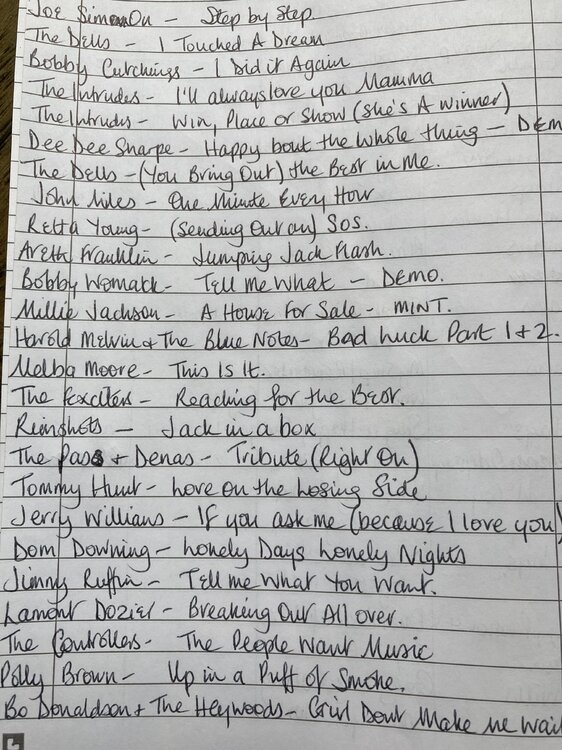 Joe SimonOn - Step by Step.
The Dells - I Touched A Dream
Bobby Cutchings - I Did it Again
The Intrudes - I'll always love you Mamma
The Intrudes - Win, Place or Show (she's A winner)
Dee Dee Sharpe - Happy bout the whole thing - DEM
The Dells - (You Bring Out) the Best in Me.
John Miles - One Minute Every Hour
Retta Young - (Sending Out an) SOS.
Areth Franklin - Jumping Jack Flash.
Bobby Womack - Tell me What - DEMO.
Millie Jackson - A House For Sale - MINT.
Harold Melvin + The Blue Notes - Bad Luck Part 1 + 2.
Melba Moore - This Is It.
The Exciters - Reaching for the Best.
Reinshots - Jack in a box
The Pas + Denas - Tribute (Right On)
Tommy Hunt - Love on the Losing Side
Jerry Willians - If you ask me (because I love you)
Dom Downing - Lonely Days Lonely Nights
Jimmy Ruffin - Tell me What You Want.
Lamont Dozier - Breaking Out All over.
The Controllers - The People Want Music
Polly Brown - Up in a Puff of Smoke.
Bo Donaldson + The Heywoods - Girl Dont Make me Wait